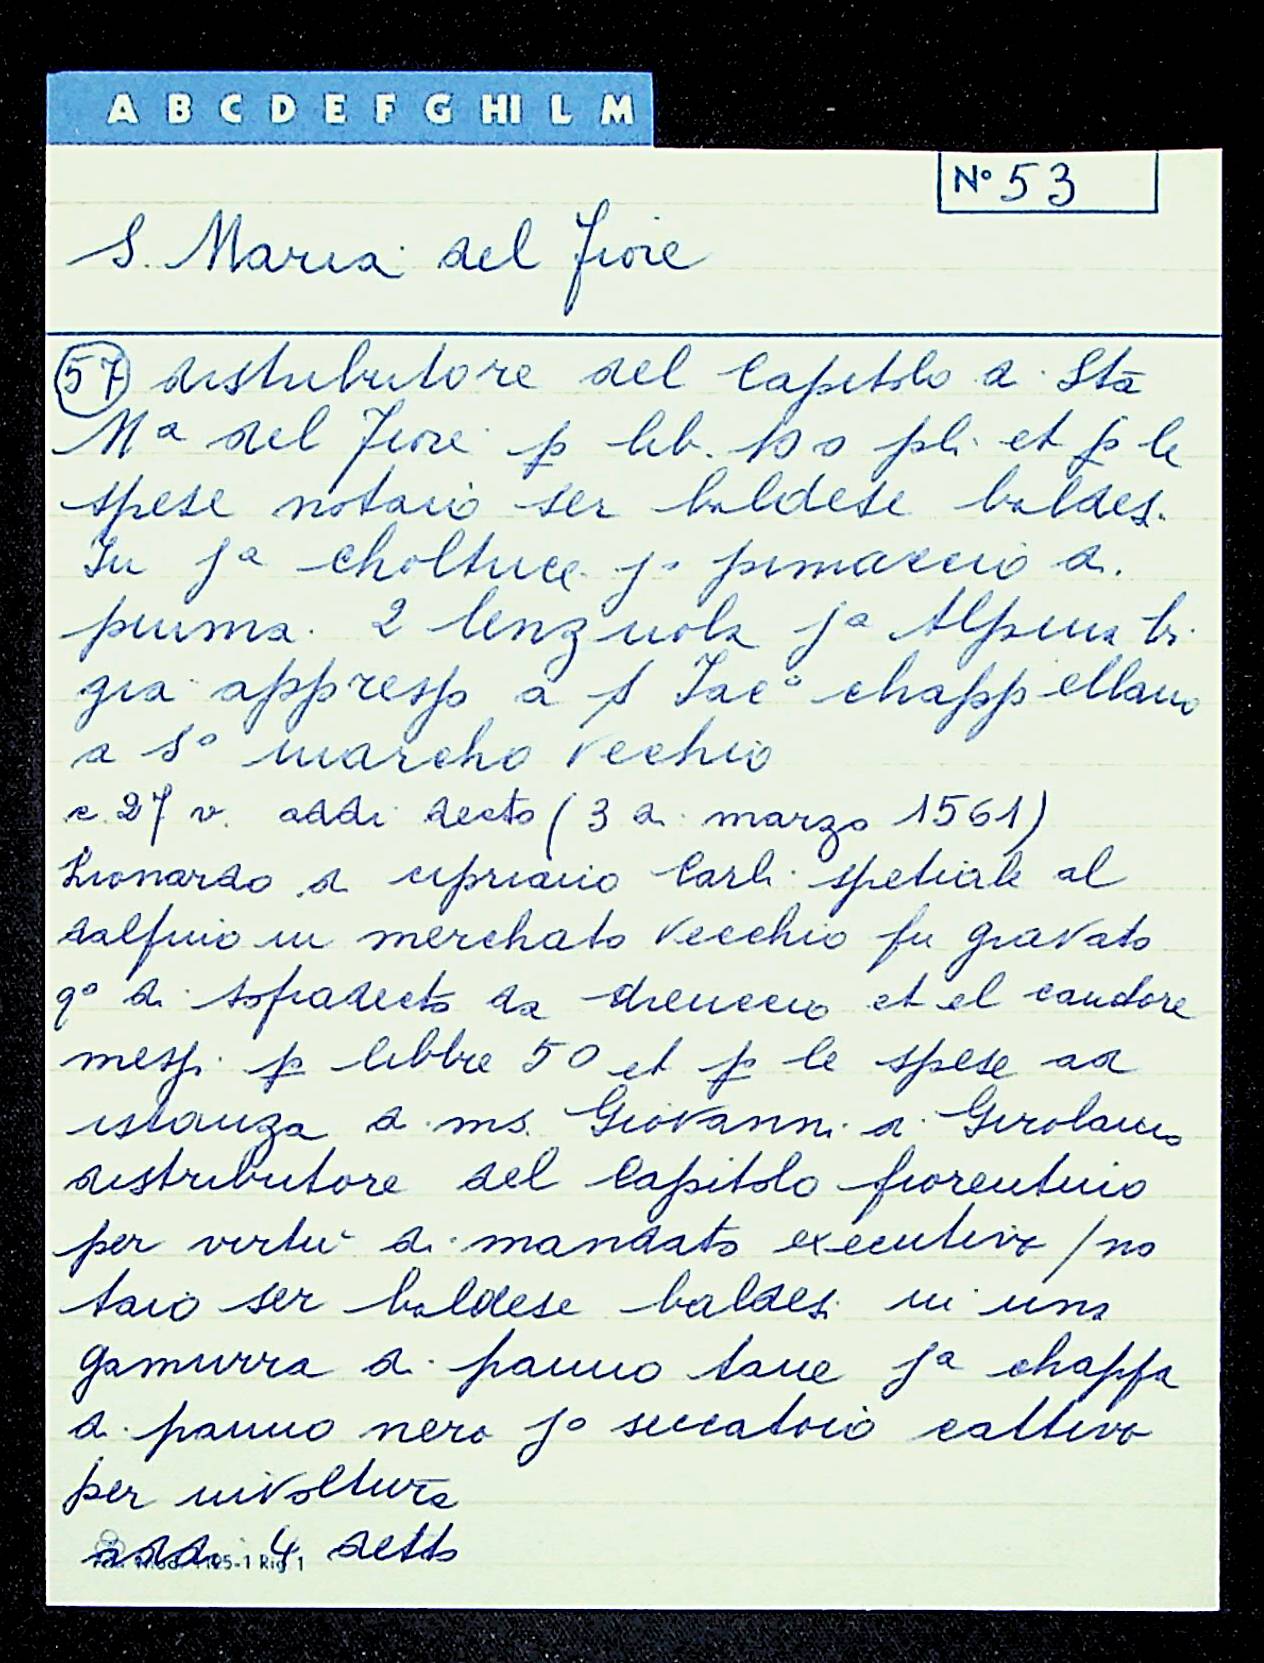 A B C D E F G HI L M
N° 53
S. Maria del Fiore
57 distributore del Capitolo di Sta
Ma del Fiore p lib. 100 pli et p le
spese notaio ser baldese baldes.
In ja choltrice jo pimaccio di
piuma. 2 lenzuola ja
gia appresso a s Iaco chappellano
a So marcho vecchio
c. 27 v. addi decto (3 di marzo 1561)
Lionardo di cipriano Carli spetiale al
dalfino in merchato vecchio fu gravato
qo di sopradecto da et el
p libbre 50 et p le spese ad
istanza di ms. Giovanni di Girolamo
distributore del Capitolo fiorentino
per virtù di mandato executivo / no
taio ser baldese baldesi in una
gamurra di panno tane ja chappa
di panno nero jo sciucatoio cattivo
per involtura
addi 4 detto